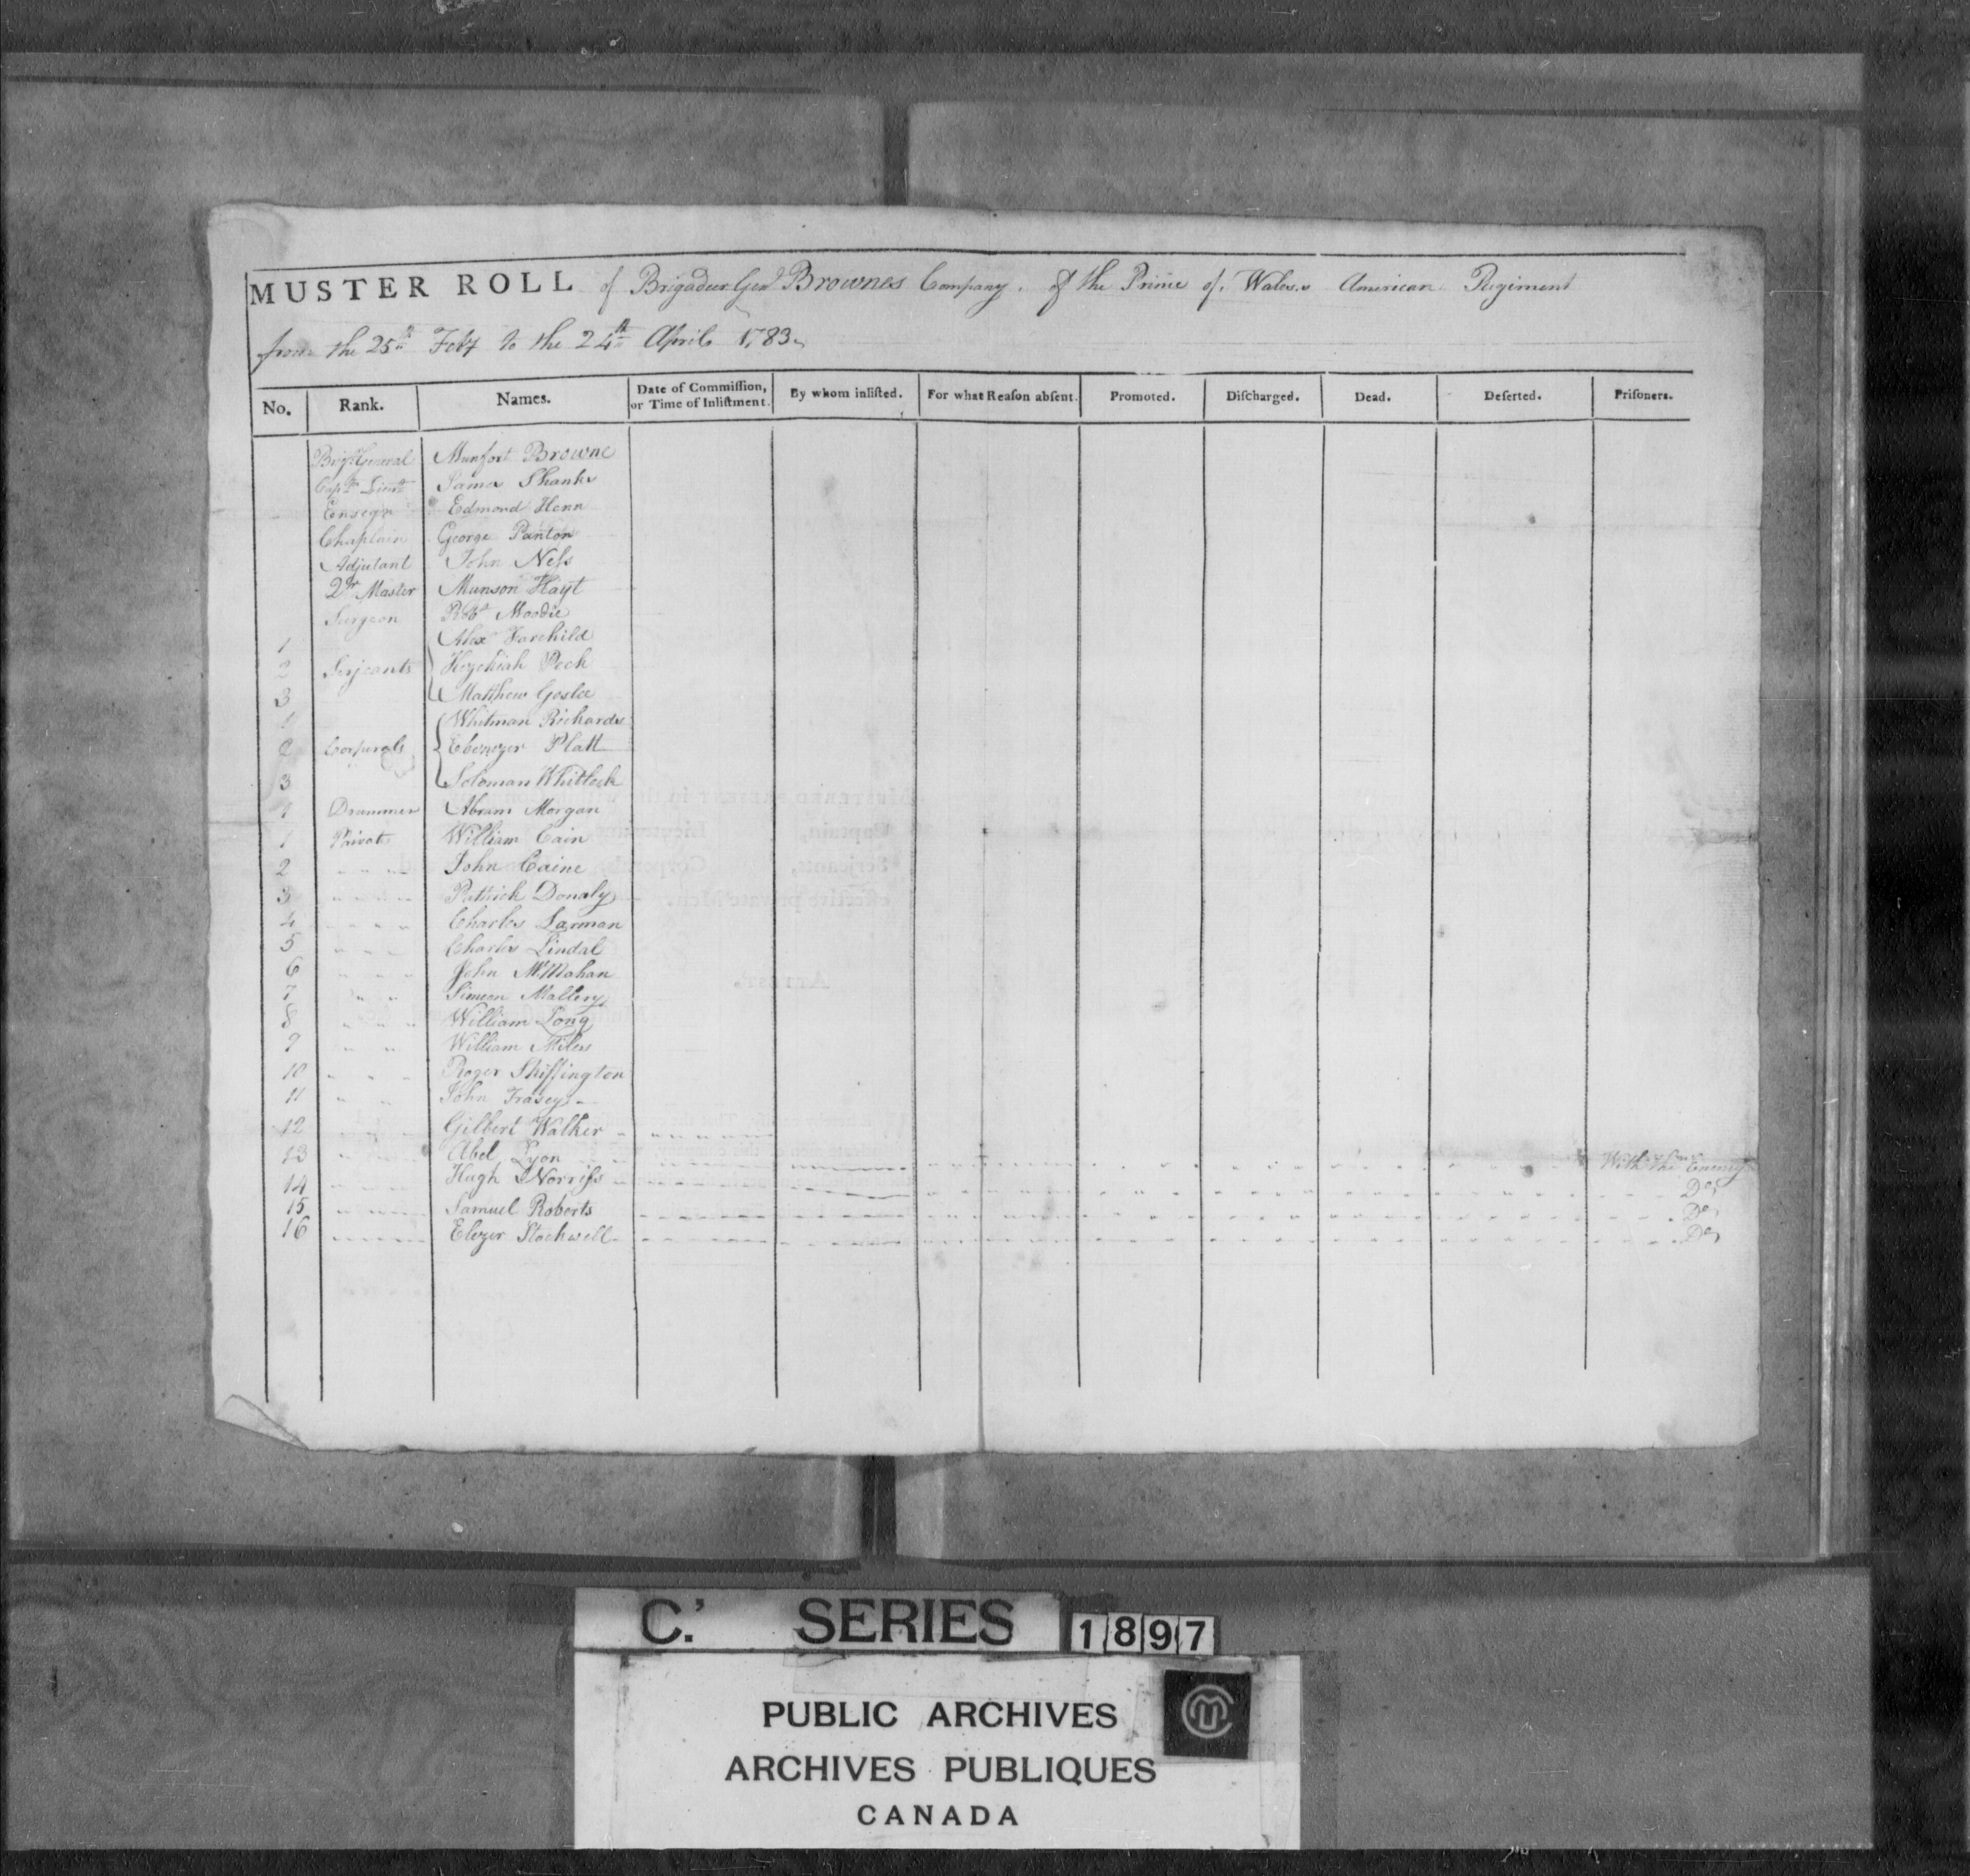 MUSTER ROLL of Brigadeer Genl Brownes Company. of the Prince of. Wales.s American Regiment
from the 25th Feby to the 24th April 1783
No. Rank. Names. Date of Commiſſion, or Time of Inliſtment. By whom inliſted. For what Reaſon abſent. Promoted. Diſcharged. Dead. Deſerted. Priſoners.
Brigr General Munfort Browne
Captn Lieut James Shanks
Ensegn Edmond Henn
Chaplain George Panton
Adjutant John Neſs
Qr Master Munson Hayt
Surgeon Robt Moodie
1 Alex Farchild
2 Serjeants Hezekiah Peck
3 Matthew Goslee
1 Whitman Richards
2 Corporals Ebenezer Platt
3 Soloman Whitlock
1 Drummer Abram Morgan
1 Private William Cain
2 " " " John Caine
3 " " " " Patrick Donaly
4 " " " " Charles Larman
5 " " " Charles Lindal
6 " " " John McMahan
7 " " Simeon Mallery
8 " " " William Long
9 " " William Miles
10 " " " Roger Skiffington
11 " " John Frasey
12 Gilbert Walker
13 Abel Lyon With the Enemy
14 Hugh Norriſs Do
15 Samuel Roberts Do
16 Elezer Stockwell Do
C.' SERIES 1897
PUBLIC ARCHIVES
ARCHIVES PUBLIQUES
CANADA